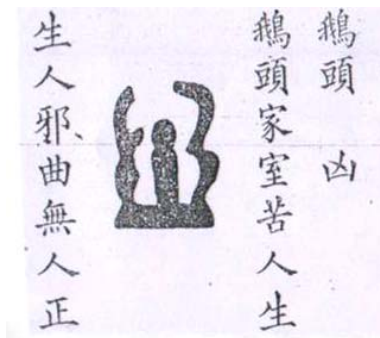 鵝頭 凶
鵝頭家室苦人生
生人邪曲無人正